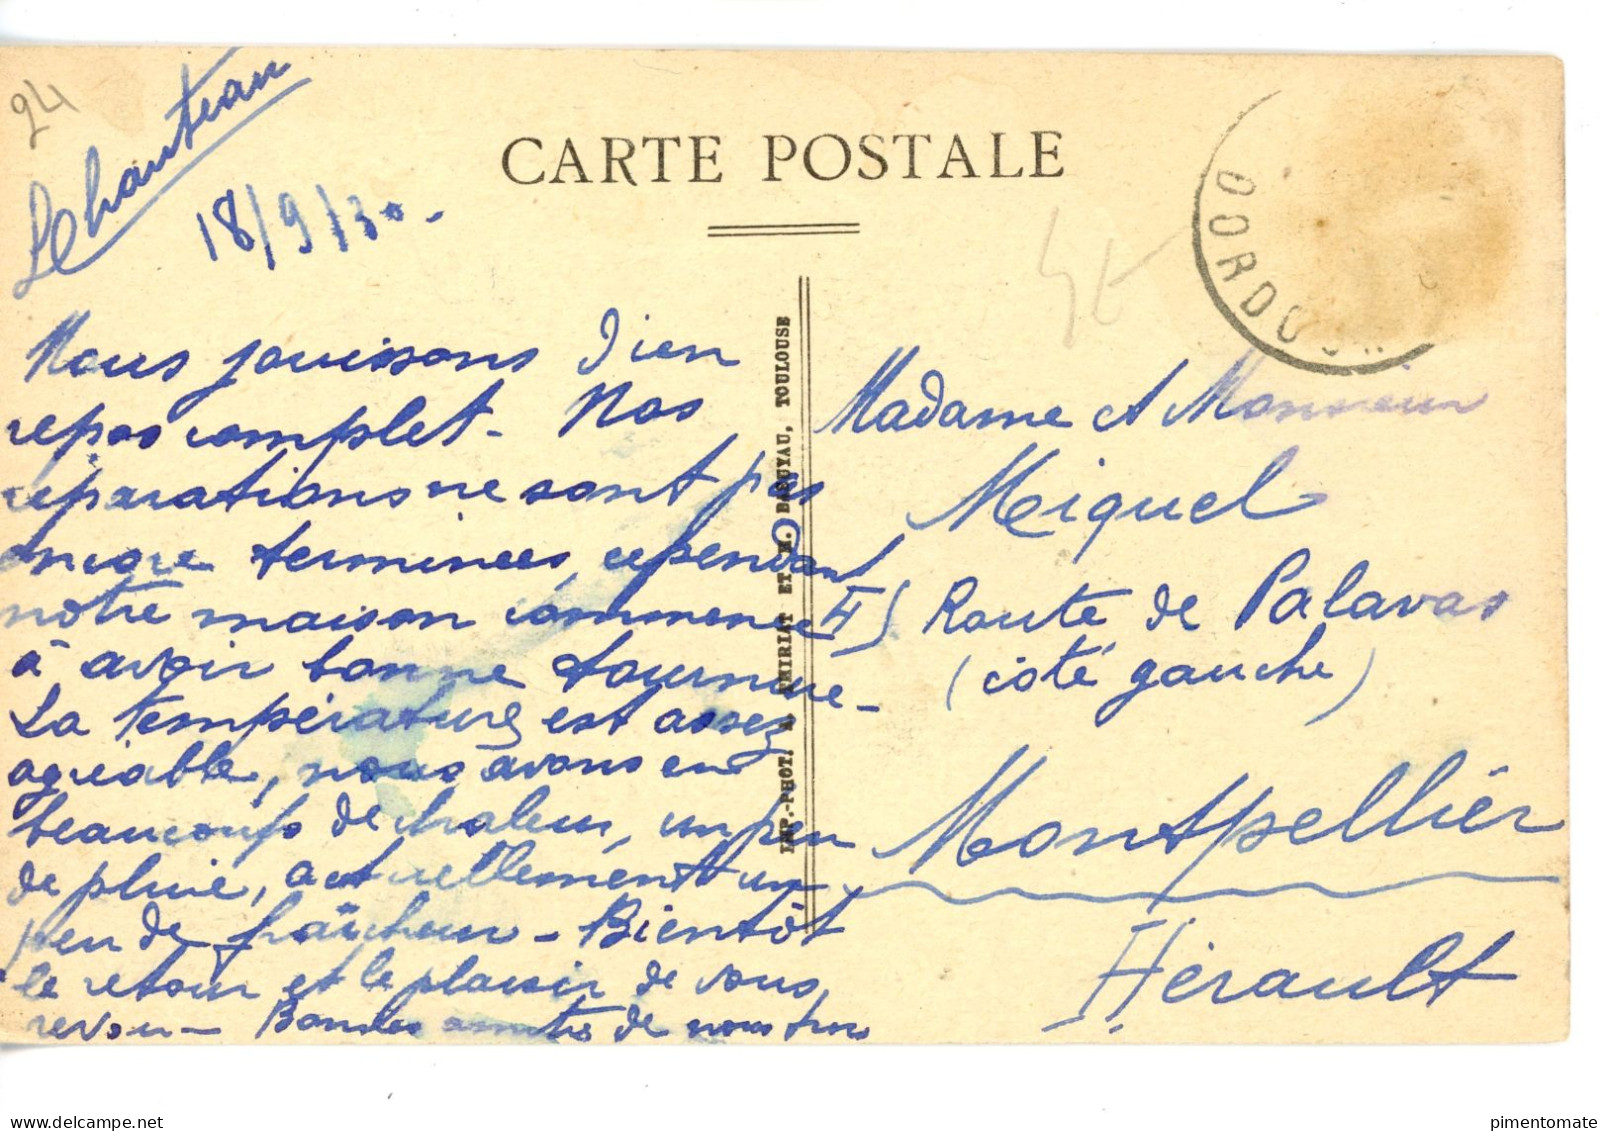 24
18/9/30.
CARTE POSTALE
DORDOGN
Nous jouissons d'un
repos complet. Nos
réparations ne sont pas
encore terminées, cependant
notre maison commence
à avoir bonne tournure.
La température est assez
agréable, nous avons eu
beaucoup de chaleur, un peu
de pluie, actuellement un
peu de fraîcheur - Bientôt
le retour et le plaisir de vous
revoir - Bonnes amitiés de nous tous
IMP.-PHOT. THIRIAT ET BASUYAU, TOULOUSE
Madame et Monsieur
Miquel
Route de Palavas
(côté gauche)
Montpellier
Hérault
pimentomate
www.delcampe.net